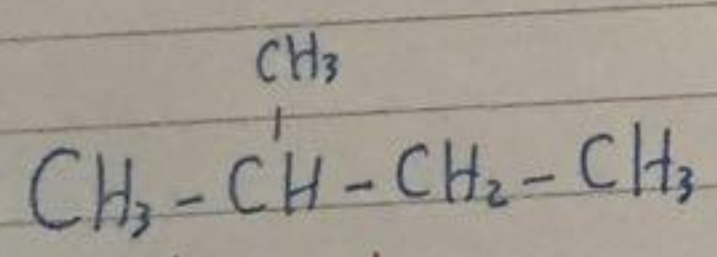 CH₃
CH₃-CH-CH₂-CH₃